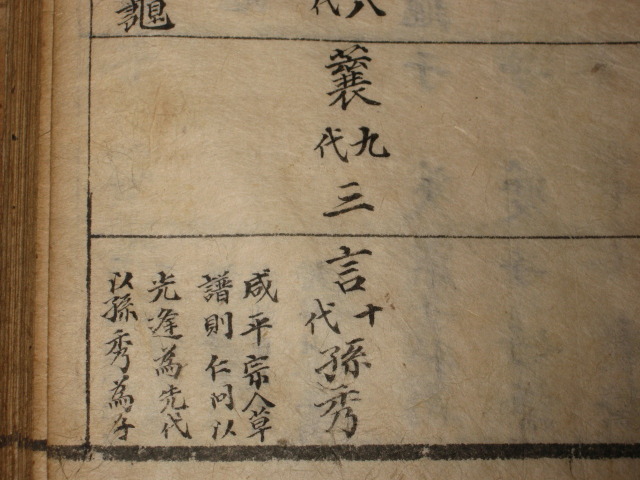 八代
九代
三
言
十代
孫秀
咸平宗人草
譜則仁问以
光逢為先代
以孫秀為子